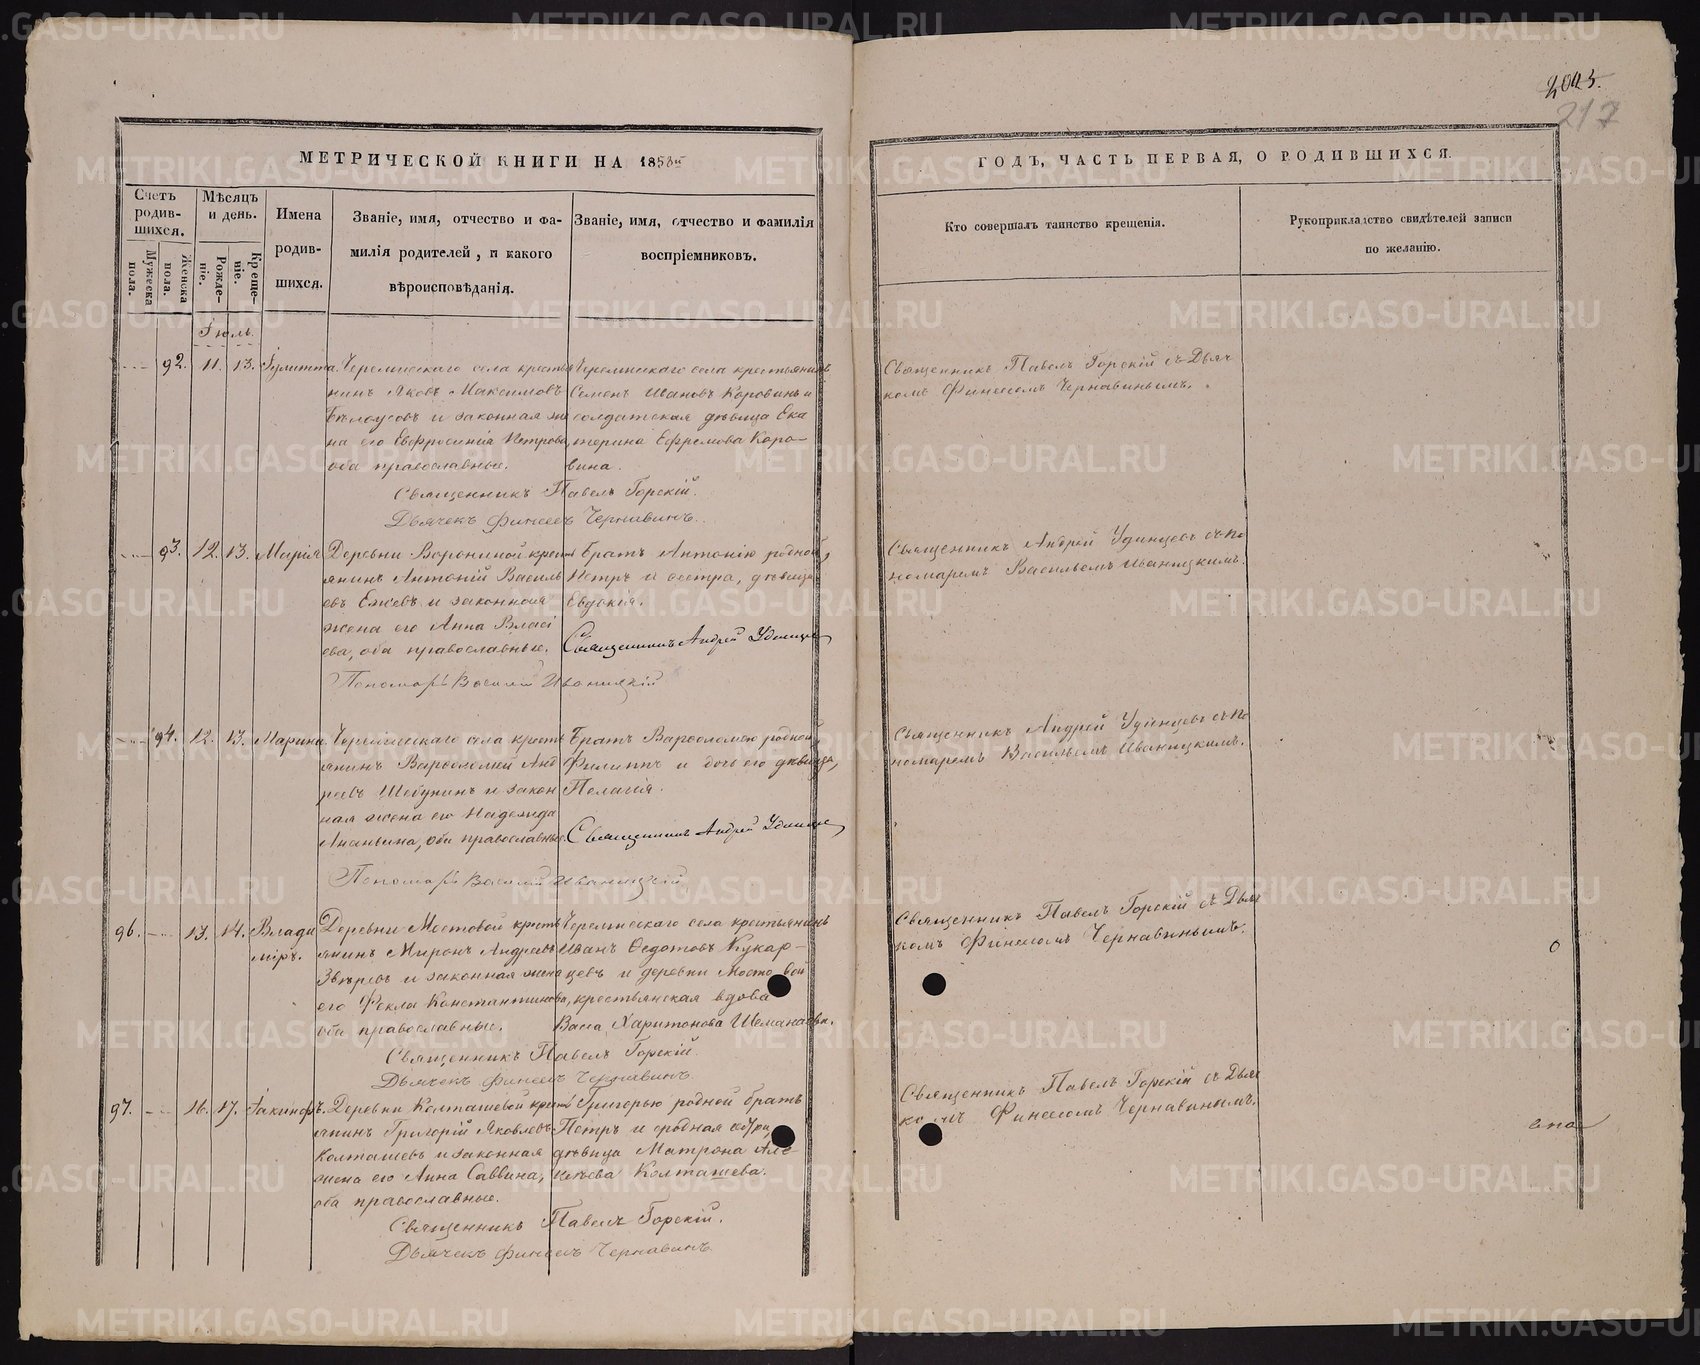 2045.
217
МЕТРИЧЕСКОЙ КНИГИ НА 1858й
ГОДЪ, ЧАСТЬ ПЕРВАЯ, О РОДИВШИХСЯ.
Счетъ родившихся.
Мужеска пола.
Женска пола.
Мѣсяцъ и день.
Рожденіе.
Крещеніе.
Имена родившихся.
Званіе, имя, отчество и фамилія родителей, и какого вѣроисповѣданія.
Званіе, имя, отчество и фамилія воспріемниковъ.
Кто совершалъ таинство крещенія.
Рукоприкладство свидѣтелей записи по желанію.
Іюль.
92. 11. 13. Іулитта.
Черемисскаго села крестья
нинъ Яковъ Максимовъ
Бѣлоусовъ и законная же
на его Евфросинія Петрова,
оба православные.
Черемисскаго села крестьянинъ
Семенъ Ивановъ Коровинъ и
солдатская дѣвица Ека
терина Ефремова Коро-
вина.
Священникъ Павелъ Горскій.
Дьячекъ Финеесъ Чернавинъ.
Священникъ Павелъ Горскій съ Дьяч
комъ Финеесомъ Чернавинымъ.
93. 12. 13. Марія
Деревни Ворониной крест
янинъ Антоній Василь
евъ Ежевъ и законная
жена его Анна Власі
ева, оба православные.
Братъ Антонію родной,
Петръ и сестра, дѣвица
Евдокія.
Священникъ Андрей Удинцевъ
Пономарь Василій Иваницкій
Священникъ Андрей Удинцевъ съ по
номаремъ Васильемъ Иваницкимъ.
94. 12. 13. Марина
Черемисскаго села кресть
янинъ Варфоломей Анд
реевъ Шебунинъ и закон
ная жена его Надежда
Ананьина, оба православные.
Братъ Варфоломею родной,
Филиппъ и дочь его дѣвица,
Пелагія.
Священникъ Андрей Удинцевъ
Пономарь Василій Иваницкій
Священникъ Андрей Удинцевъ съ по
номаремъ Васильемъ Иваницкимъ.
96. 13. 14. Влади
міръ.
Деревни Мостовой кресть
янинъ Миронъ Андреевъ
Звѣревъ и законная жена
его Фекла Константинова,
оба православные.
Черемисскаго села крестьянинъ
Иванъ Федотовъ Кукар-
цевъ и деревни Мостовой
крестьянская вдова
Васса Харитонова Шеманаева.
Священникъ Павелъ Горскій.
Дьячекъ Финеесъ Чернавинъ
Священникъ Павелъ Горскій съ Дьяч
комъ Финеесомъ Чернавинымъ.
97. 16. 17. Іакинфъ.
Деревни Колташевой крест
янинъ Григорій Яковлевъ
Колташевъ и законная
жена его Анна Саввина,
оба православные.
Григорью родной братъ
Петръ и сродная сестра,
дѣвица Матрона Але-
ксѣева Колташева.
Священникъ Павелъ Горскій.
Дьячекъ Финеесъ Чернавинъ
Священникъ Павелъ Горскій съ Дьяч
комъ Финеесомъ Чернавинымъ.
METRIKI.GASO-URAL.RU